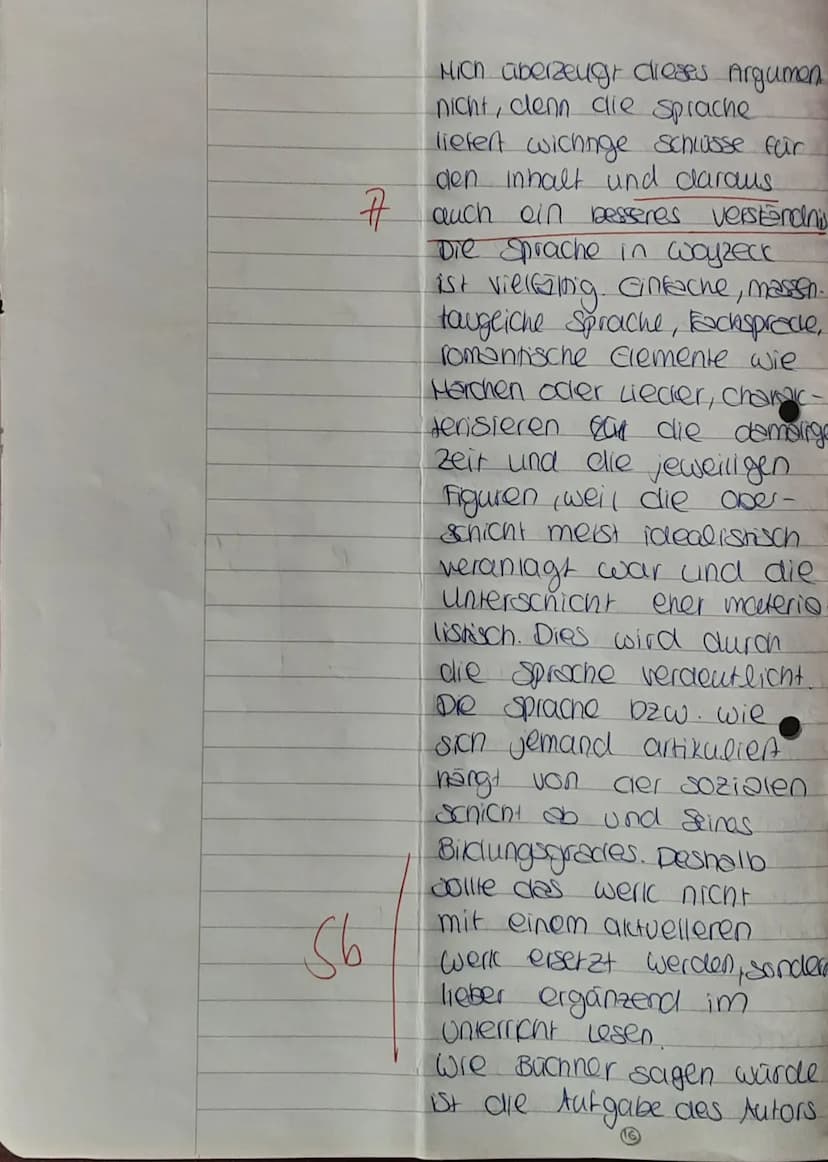 Mich überzeugt dieses Argumen
nicht, denn die Sprache
liefert wichtige Schlüsse für
den Inhalt und daraus
A auch ein besseres Verständnis
Die Sprache in Woyzeck
ist vielfältig. Einfache, massen-
taugliche Sprache, Fachsprache,
romantische Elemente wie
Märchen oder Lieder, charak-
terisieren die damalige
Zeit und die jeweiligen
Figuren, weil die Ober-
schicht meist idealistisch
veranlagt war und die
Unterschicht eher materia
listisch. Dies wird durch
die Sprache verdeutlicht.
Die Sprache bzw. wie
sich jemand artikuliert
hängt von der sozialen
Schicht ab und seines
Bildungsgrades. Deshalb
sollte das Werk nicht
mit einem aktuelleren
Sb Werk ersetzt werden, sonder
lieber ergänzend im
Unterricht lesen.
Wie Büchner sagen würde
ist die Aufgabe des Autors
16